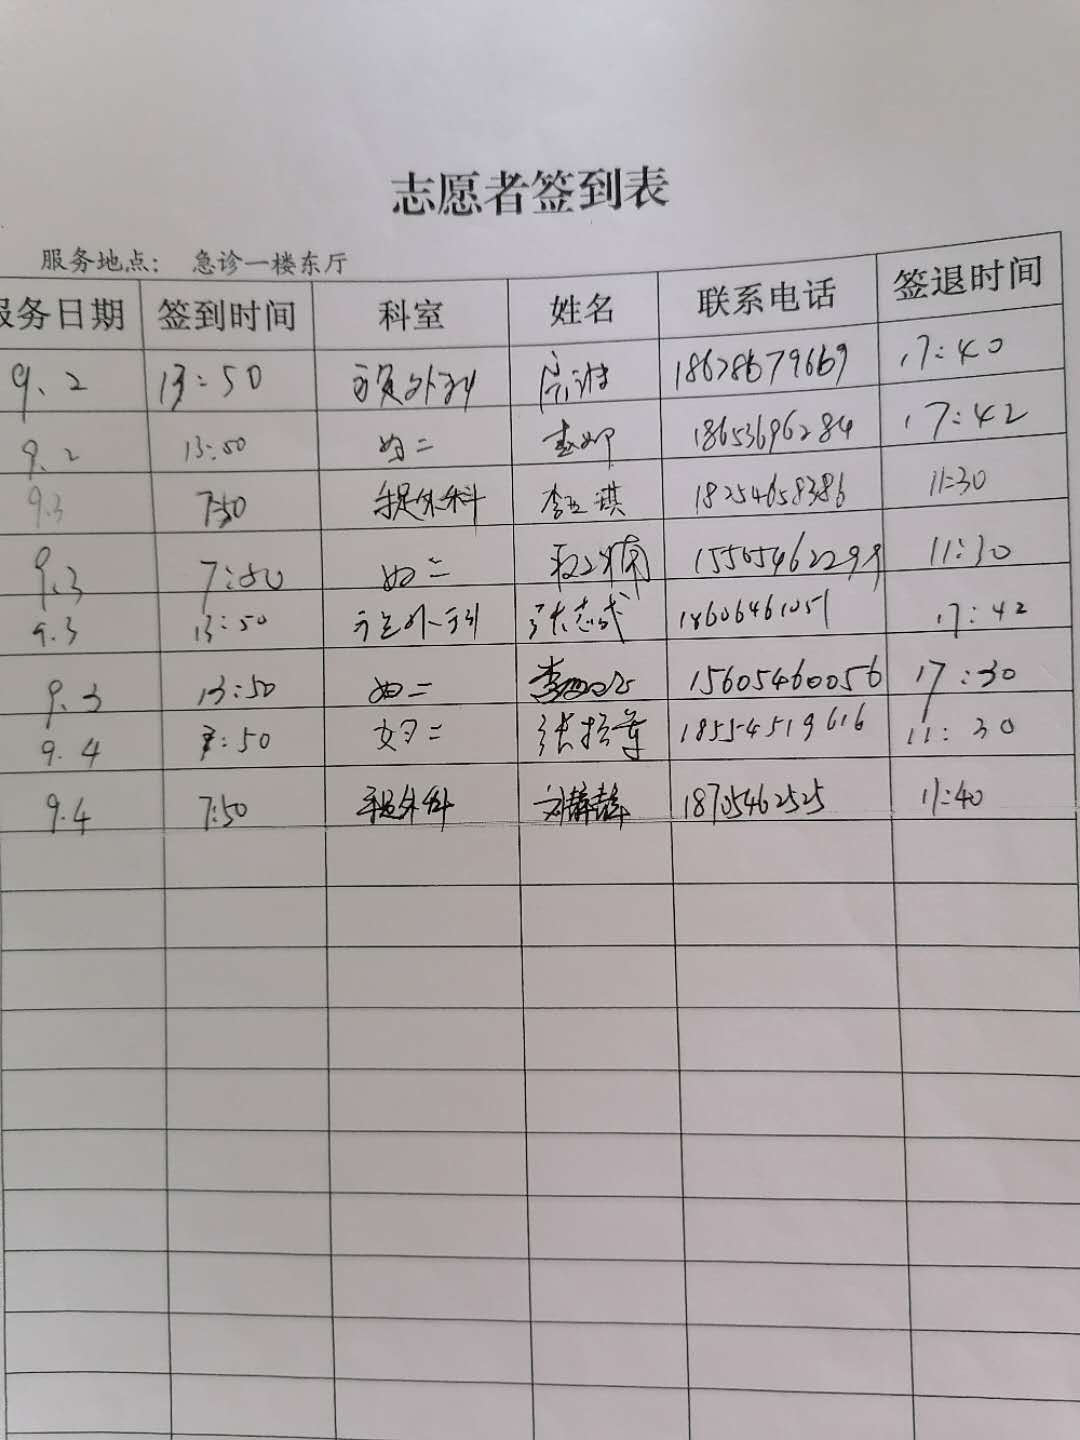 志愿者签到表
服务地点： 急诊一楼东厅
服务日期 签到时间 科室 姓名 联系电话 签退时间
9.2 13:50 18628679669 17:40
9.2 13:50 妇二 18653696284 17:42
9.3 7:50 手足外科 李玉琪 18254658386 11:30
9.3 7:50 妇二 15505462299 11:30
9.3 13:50 手足外科 张志成 18606461051 17:42
9.3 13:50 妇二 15605460056 17:30
9.4 7:50 妇二 18554519616 11:30
9.4 7:50 手足外科 刘静静 18705462525 11:40